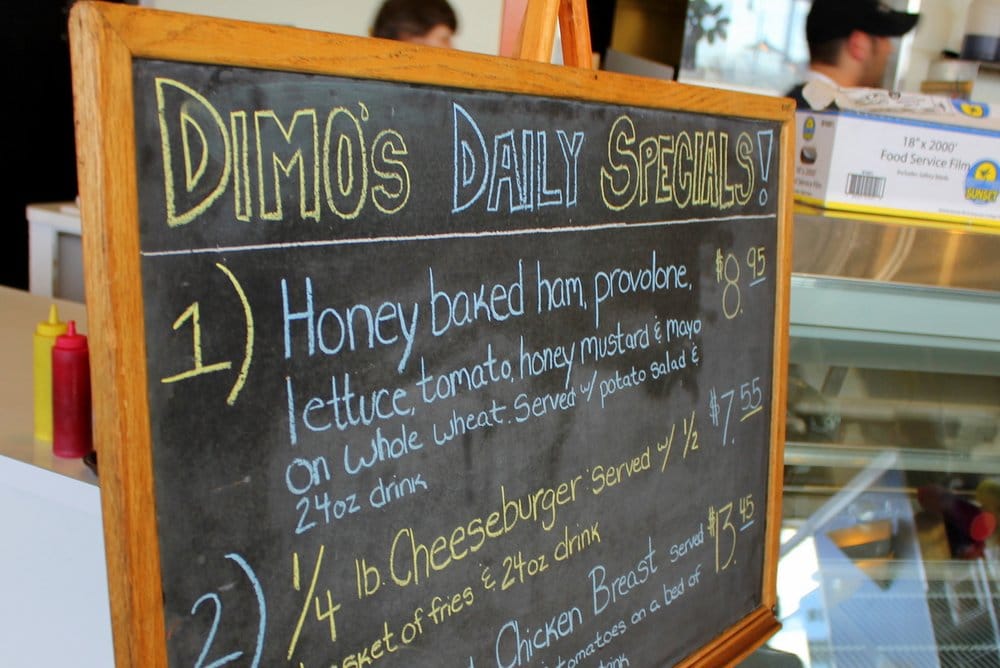 DIMO'S DAILY SPECIALS!
1) Honey baked ham, provolone, $8.95
lettuce, tomato, honey mustard & mayo
on whole wheat. Served w/ potato salad &
24oz drink
2) 1/4 lb. Cheeseburger served w/ 1/2 $7.55
basket of fries & 24oz drink
Chicken Breast served $13.45
tomatoes on a bed of
drink
18" x 2000'
Food Service Film
SUNSET